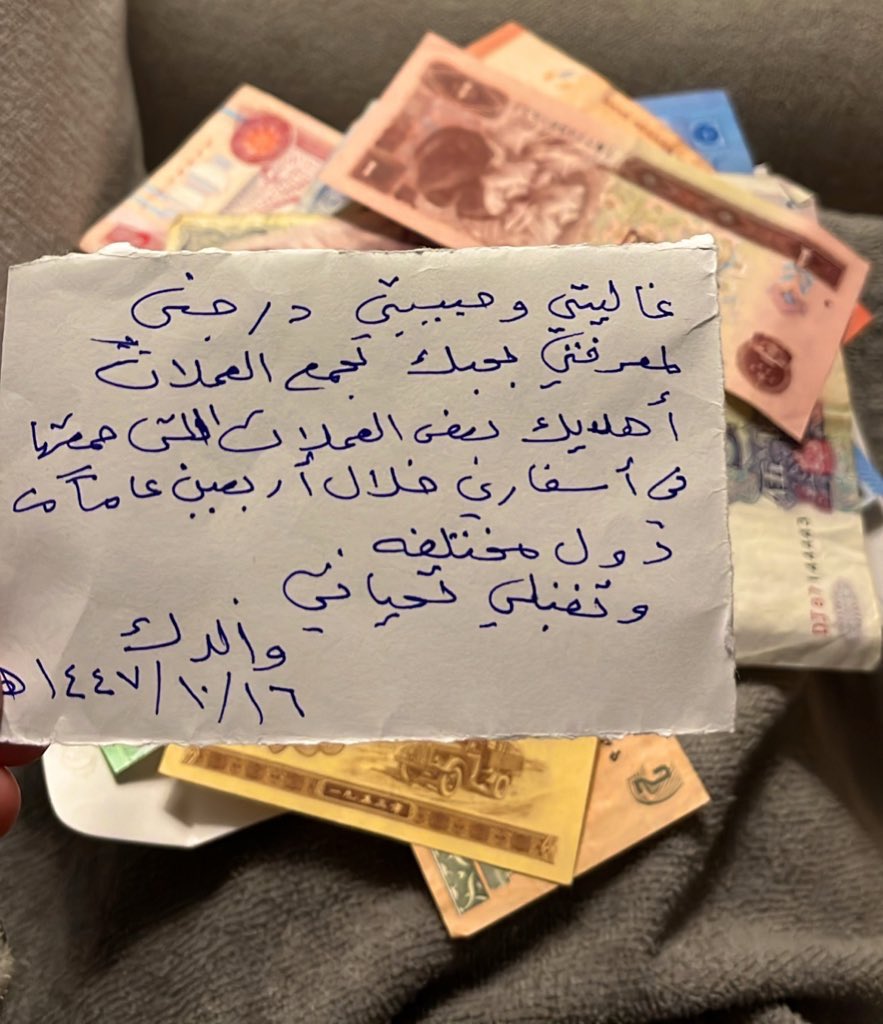 غاليتي وحبيبتي د/جنى
لمعرفتي بحبك تجمع العملات
أهديك بعض العملات التي جمعتها
في أسفاري خلال أربعين عاماً من
دول مختلفه
وتقبلي تحياتي
والدك
١٤٤٧/١٠/١٦هـ
1
1
2